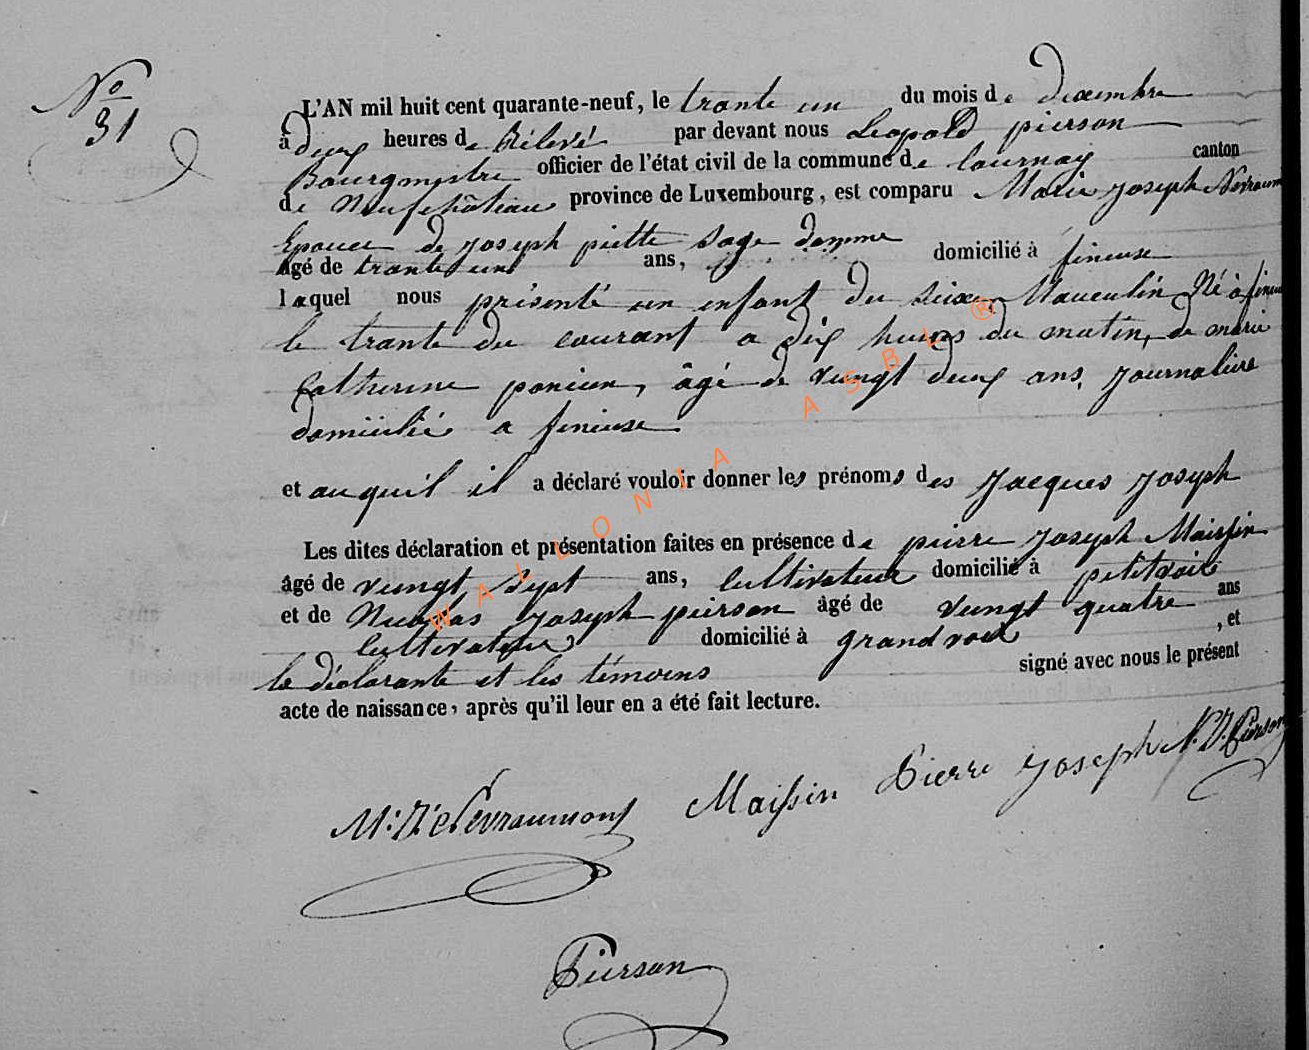 No
31
L'AN mil huit cent quarante-neuf, le trante un du mois de decembre
à deux heures de Rélevé par devant nous Leopold pierson
Bourgmestre officier de l'état civil de la commune de tournay canton
de Neufchâteau province de Luxembourg, est comparu Marie Joseph Nevraum
Epouce de Joseph piette Sage damme domicilié à fineuse
âgé de trante un ans,
laquel nous présenté un enfant du Seixe Mauculin Né à fineu
le trante du courant a dix heures du matin, de marie
Catherine poncien, âgé de vungt deux ans, Journaliere
domiciliée a fineuse
et auquil il a déclaré vouloir donner les prénoms des Jacques Joseph
Les dites déclaration et présentation faites en présence de pierre Joseph Maissin
âgé de vungt sept ans, Cultivateur domicilié à petitvoir
et de Nicolas Joseph pierson âgé de vungt quatre ans
Cultivateur domicilié à grandvoir , et
la déclarante et les témoins signé avec nous le présent
acte de naissance, après qu'il leur en a été fait lecture.
Maissin Pierre Joseph N. J. Pierson
Pierson
WALLONIA ASBL ®